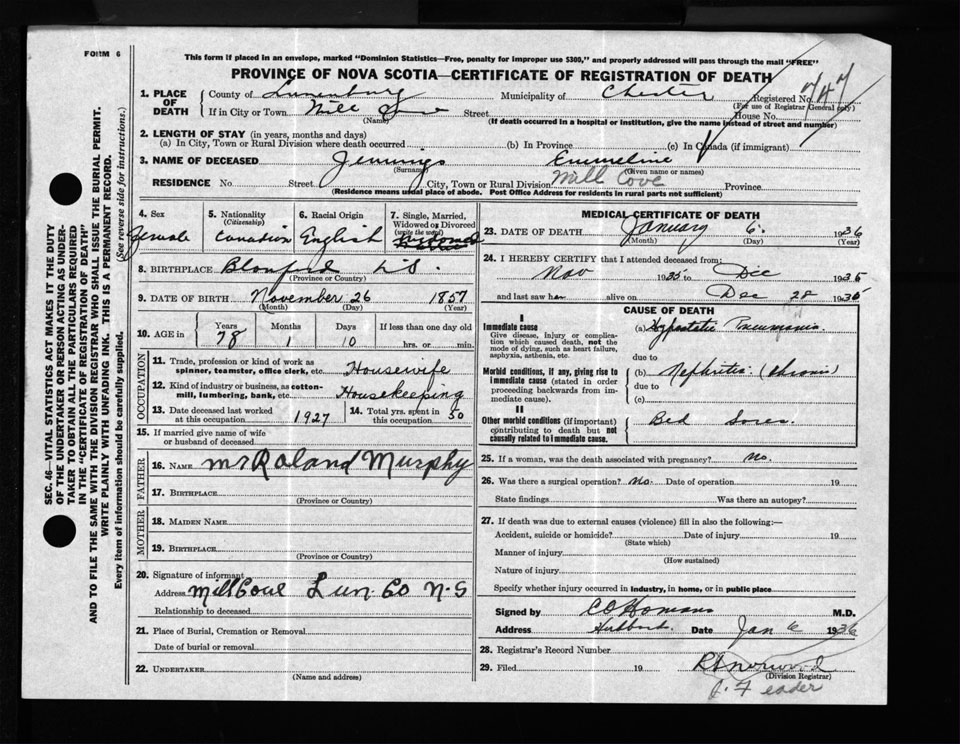 FORM 6
This form if placed in an envelope, marked "Dominion Statistics—Free, penalty for improper use $300," and properly addressed will pass through the mail "FREE"
PROVINCE OF NOVA SCOTIA—CERTIFICATE OF REGISTRATION OF DEATH
747
1. PLACE OF DEATH
County of Lunenburg Municipality of Chester Registered No.
(For use of Registrar General only)
If in City or Town Mill Cove Street House No.
(Name) (If death occurred in a hospital or institution, give the name instead of street and number)
2. LENGTH OF STAY (in years, months and days)
(a) In City, Town or Rural Division where death occurred (b) In Province (c) In Canada (if immigrant)
3. NAME OF DECEASED Jennings Emmeline
(Surname) (Given name or names)
RESIDENCE No. Street City, Town or Rural Division Mill Cove Province
(Residence means usual place of abode. Post Office Address for residents in rural parts not sufficient)
SEC. 46—VITAL STATISTICS ACT MAKES IT THE DUTY
OF THE UNDERTAKER OR PERSON ACTING AS UNDER-
TAKER TO OBTAIN ALL THE PARTICULARS REQUIRED
IN THE "CERTIFICATE OF REGISTRATION OF DEATH"
AND TO FILE THE SAME WITH THE DIVISION REGISTRAR WHO SHALL ISSUE THE BURIAL PERMIT.
WRITE PLAINLY WITH UNFADING INK. THIS IS A PERMANENT RECORD.
Every item of information should be carefully supplied. (See reverse side for instructions.)
4. Sex
Female
5. Nationality
(Citizenship)
Canadian
6. Racial Origin
English
7. Single, Married, Widowed or Divorced
(write the word)
8. BIRTHPLACE Blanford N.S.
(Province or Country)
9. DATE OF BIRTH November 26 1857
(Month) (Day) (Year)
10. AGE in Years Months Days If less than one day old
78 1 10 hrs. or min.
OCCUPATION
11. Trade, profession or kind of work as spinner, teamster, office clerk, etc. Housewife
12. Kind of industry or business, as cotton-mill, lumbering, bank, etc. Housekeeping
13. Date deceased last worked at this occupation 1927
14. Total yrs. spent in this occupation 50
15. If married give name of wife or husband of deceased
FATHER
16. NAME Mr Roland Murphy
17. BIRTHPLACE
(Province or Country)
MOTHER
18. MAIDEN NAME
19. BIRTHPLACE
(Province or Country)
20. Signature of informant
Address Mill Cove Lun. Co N-S
Relationship to deceased
21. Place of Burial, Cremation or Removal
Date of burial or removal
22. UNDERTAKER
(Name and address)
MEDICAL CERTIFICATE OF DEATH
23. DATE OF DEATH January 6. 1936
(Month) (Day) (Year)
24. I HEREBY CERTIFY that I attended deceased from:
Nov 1935 to Dec 1935
and last saw her alive on Dec 28 1935
CAUSE OF DEATH
I
Immediate cause
Give disease, injury or complication which caused death, not the mode of dying, such as heart failure, asphyxia, asthenia, etc.
(a) Hypostatic Pneumonia
due to
Morbid conditions, if any, giving rise to immediate cause (stated in order proceeding backwards from immediate cause).
(b) Nephritis (Chronic)
due to
(c)
II
Other morbid conditions (if important) contributing to death but not causally related to immediate cause.
Bed Sores
25. If a woman, was the death associated with pregnancy? No.
26. Was there a surgical operation? No. Date of operation 19
State findings Was there an autopsy?
27. If death was due to external causes (violence) fill in also the following:—
Accident, suicide or homicide? Date of injury 19
(State which)
Manner of injury
(How sustained)
Nature of injury
Specify whether injury occurred in industry, in home, or in public place
Signed by M.D.
Address Hubbards Date Jan 6 1936
28. Registrar's Record Number
29. Filed 19
(Division Registrar)